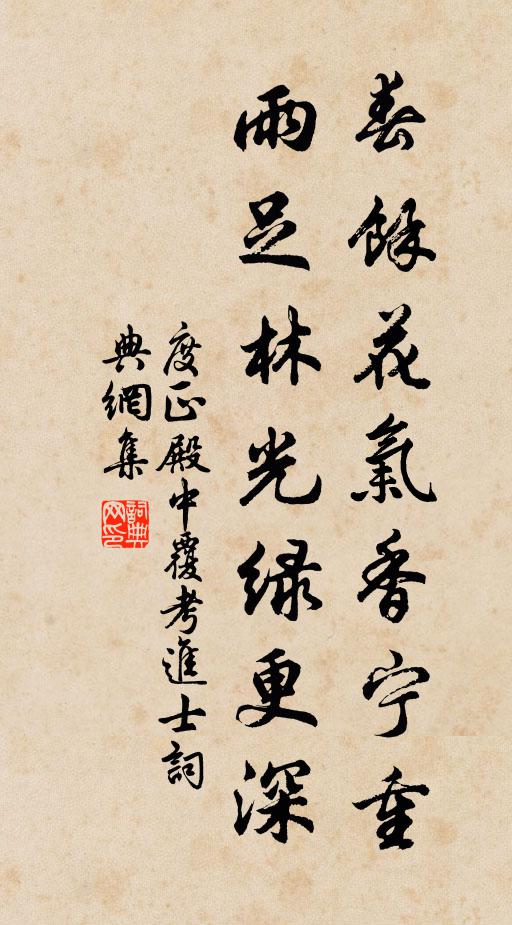 春餘花氣香宁重
雨足林光緑更深
度正殿中覆考進士詞
典網集
詞典
网印